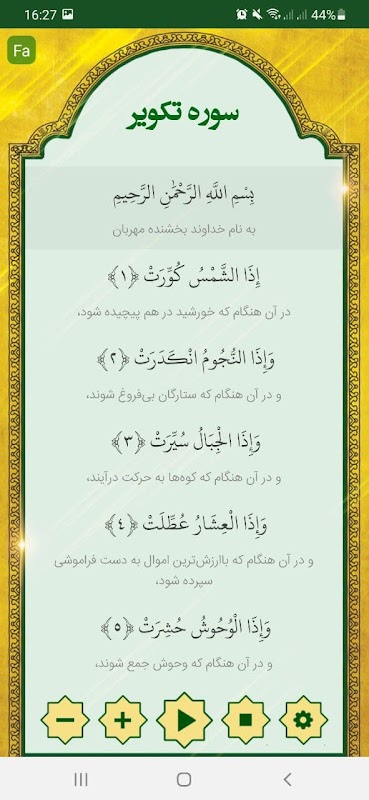 16:27
44%
Fa
سوره تکویر
بِسْمِ اللَّهِ الرَّحْمَٰنِ الرَّحِيمِ
به نام خداوند بخشنده مهربان
إِذَا الشَّمْسُ كُوِّرَتْ ﴿١﴾
در آن هنگام که خورشید در هم پیچیده شود،
وَإِذَا النُّجُومُ انْكَدَرَتْ ﴿٢﴾
و در آن هنگام که ستارگان بی‌فروغ شوند،
وَإِذَا الْجِبَالُ سُيِّرَتْ ﴿٣﴾
و در آن هنگام که کوه‌ها به حرکت درآیند،
وَإِذَا الْعِشَارُ عُطِّلَتْ ﴿٤﴾
و در آن هنگام که باارزش‌ترین اموال به دست فراموشی
سپرده شود،
وَإِذَا الْوُحُوشُ حُشِرَتْ ﴿٥﴾
و در آن هنگام که وحوش جمع شوند،